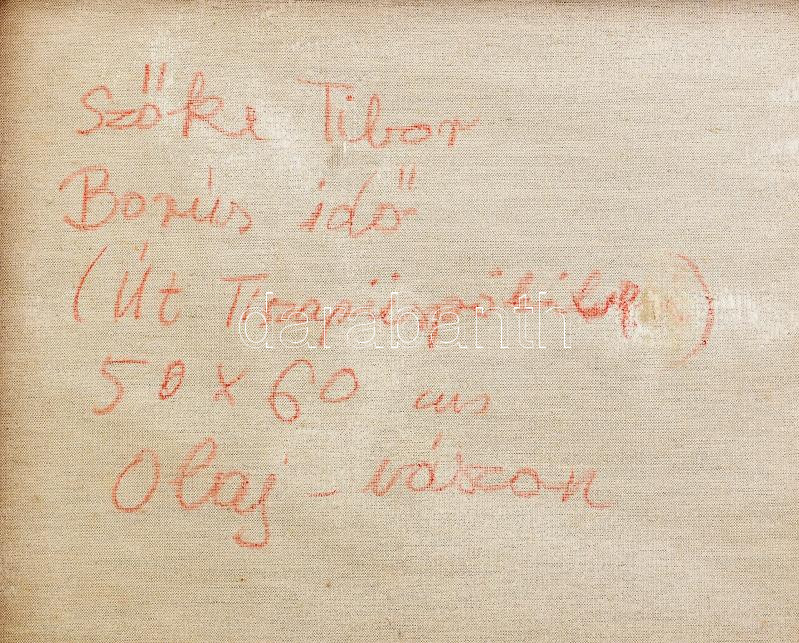 Szőke Tibor
Borús idő
(Út Tiszapüspökibe)
darabanth
50 x 60 cm
Olaj - vászon